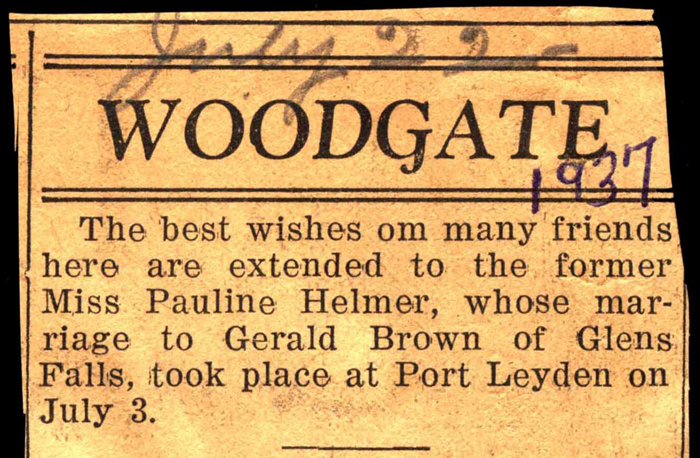 July 22-
WOODGATE
1937
The best wishes om many friends
here are extended to the former
Miss Pauline Helmer, whose mar-
riage to Gerald Brown of Glens
Falls, took place at Port Leyden on
July 3.